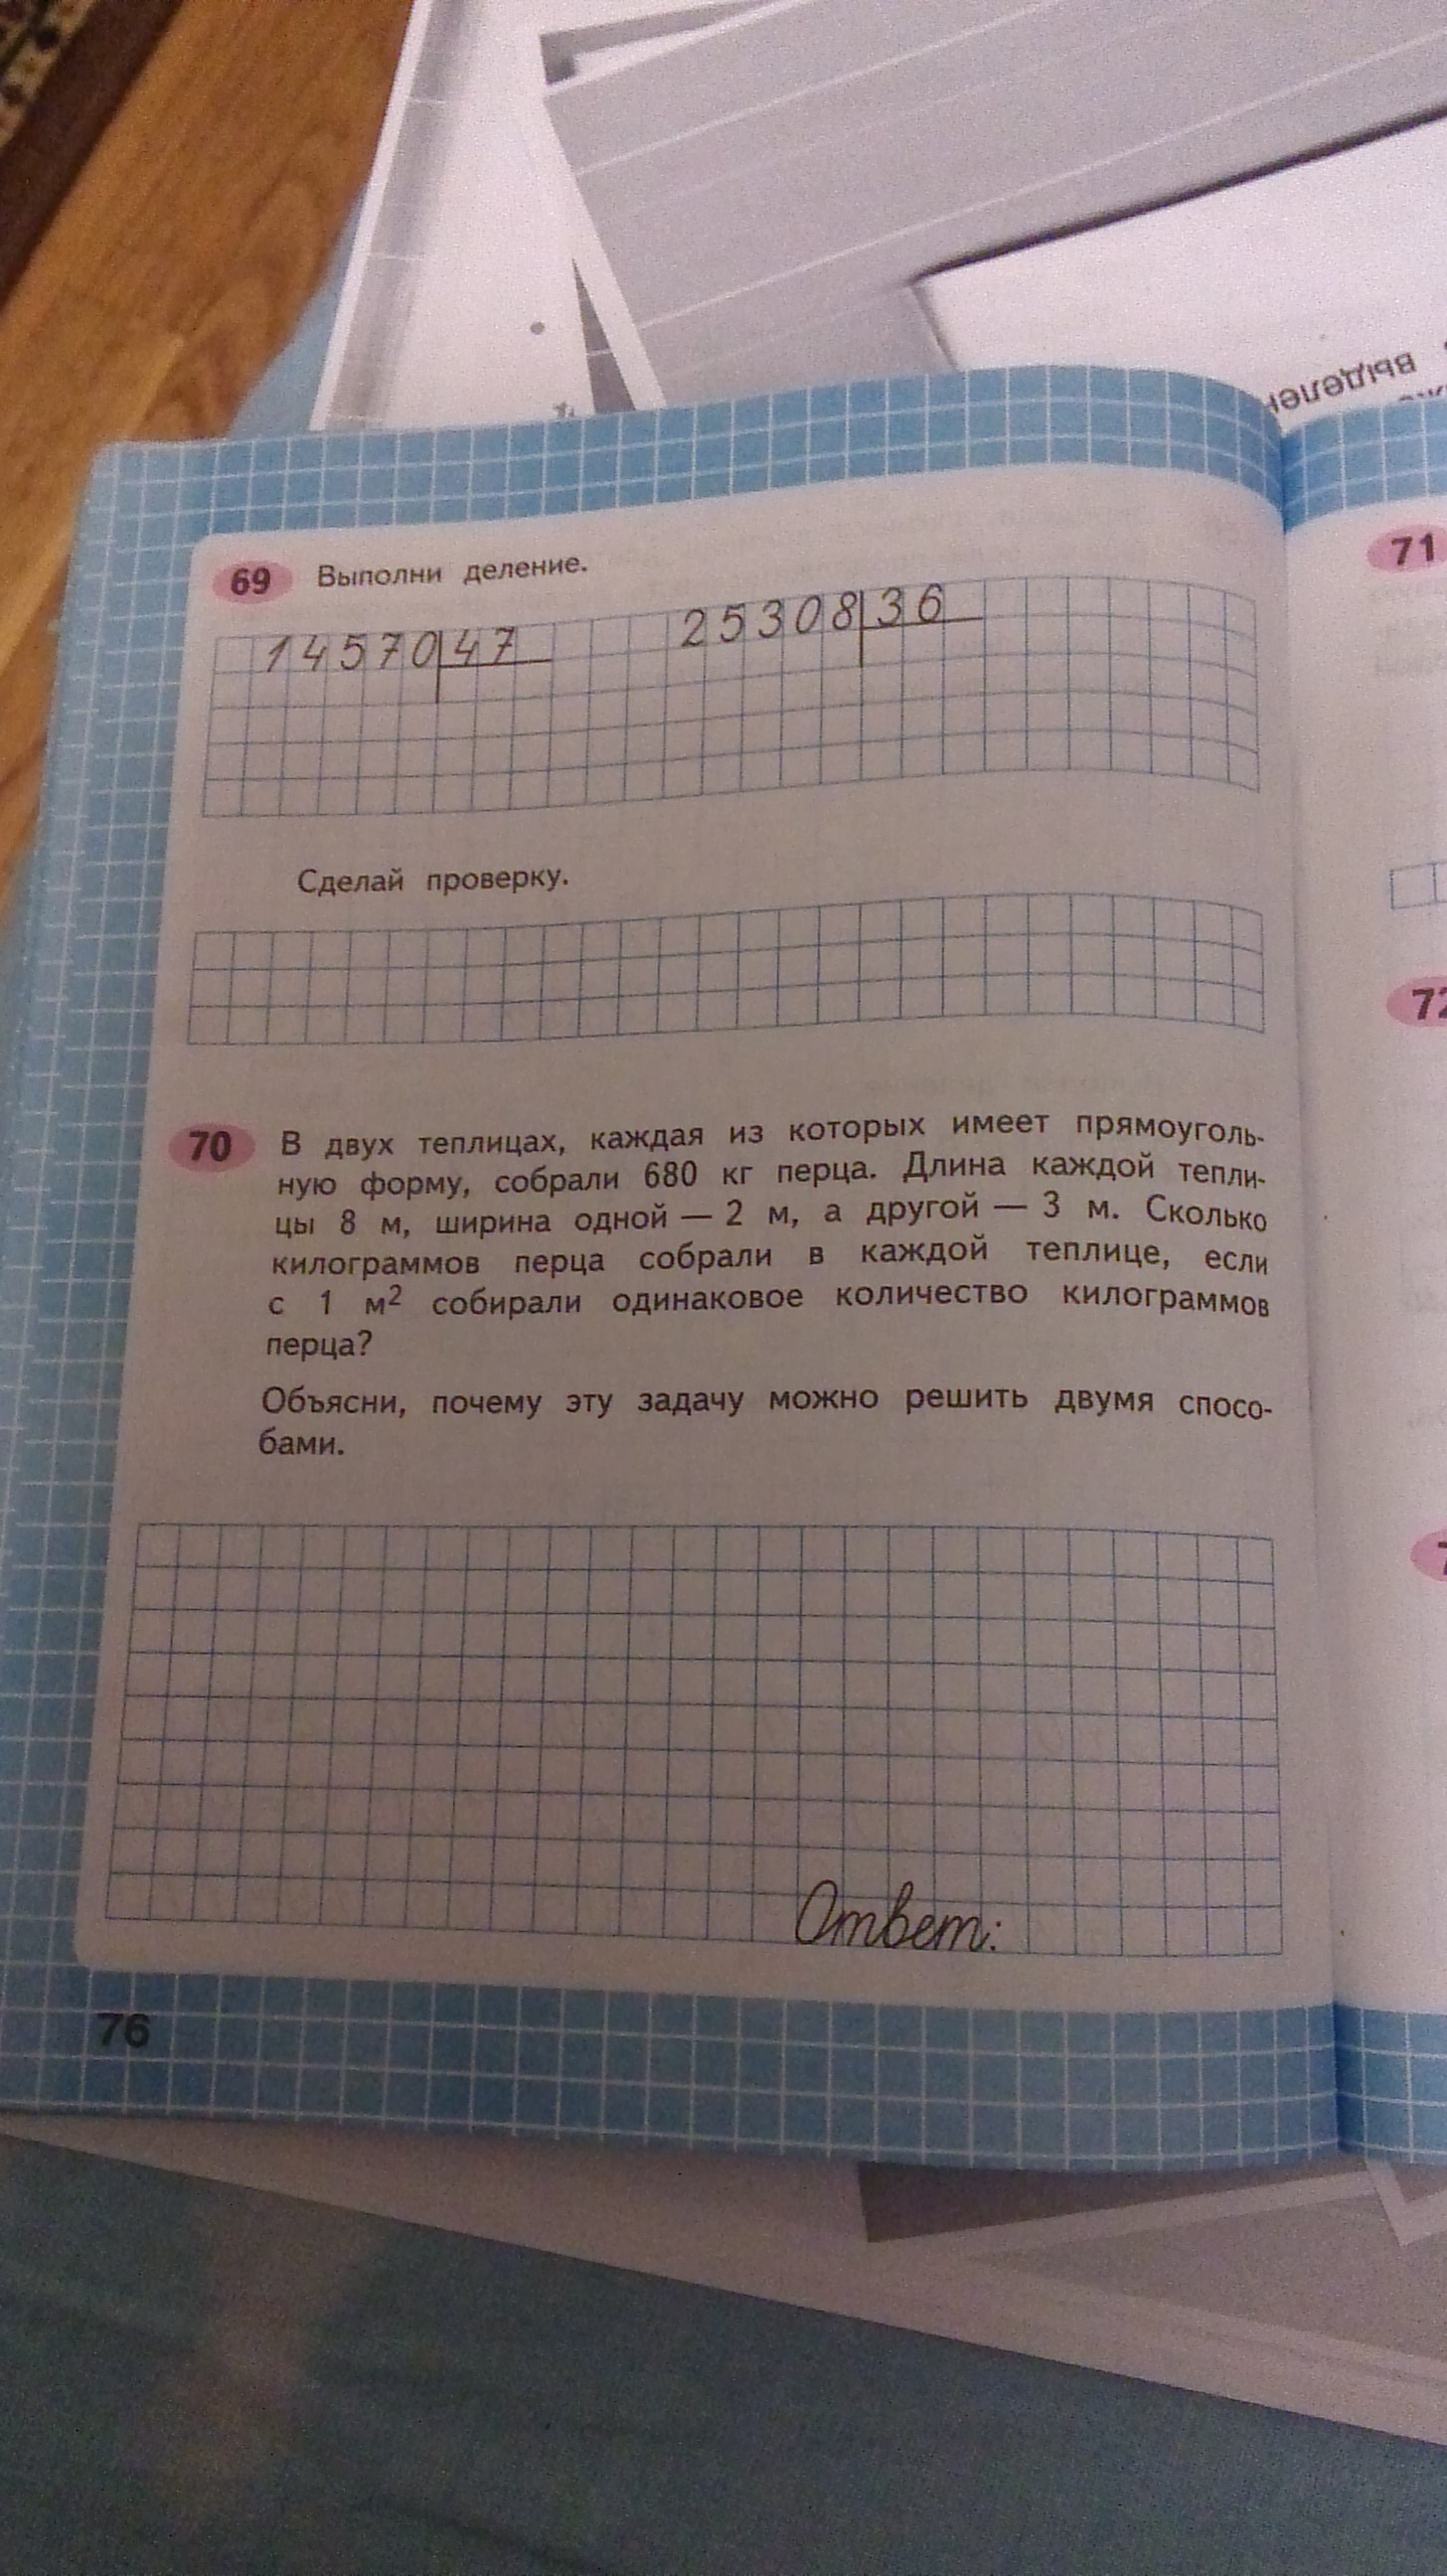 выделен
69 Выполни деление.
14570 47
25308 36
Сделай проверку.
70 В двух теплицах, каждая из которых имеет прямоуголь-
ную форму, собрали 680 кг перца. Длина каждой тепли-
цы 8 м, ширина одной — 2 м, а другой — 3 м. Сколько
килограммов перца собрали в каждой теплице, если
с 1 м² собирали одинаковое количество килограммов
перца?
Объясни, почему эту задачу можно решить двумя спосо-
бами.
Ответ:
76
71